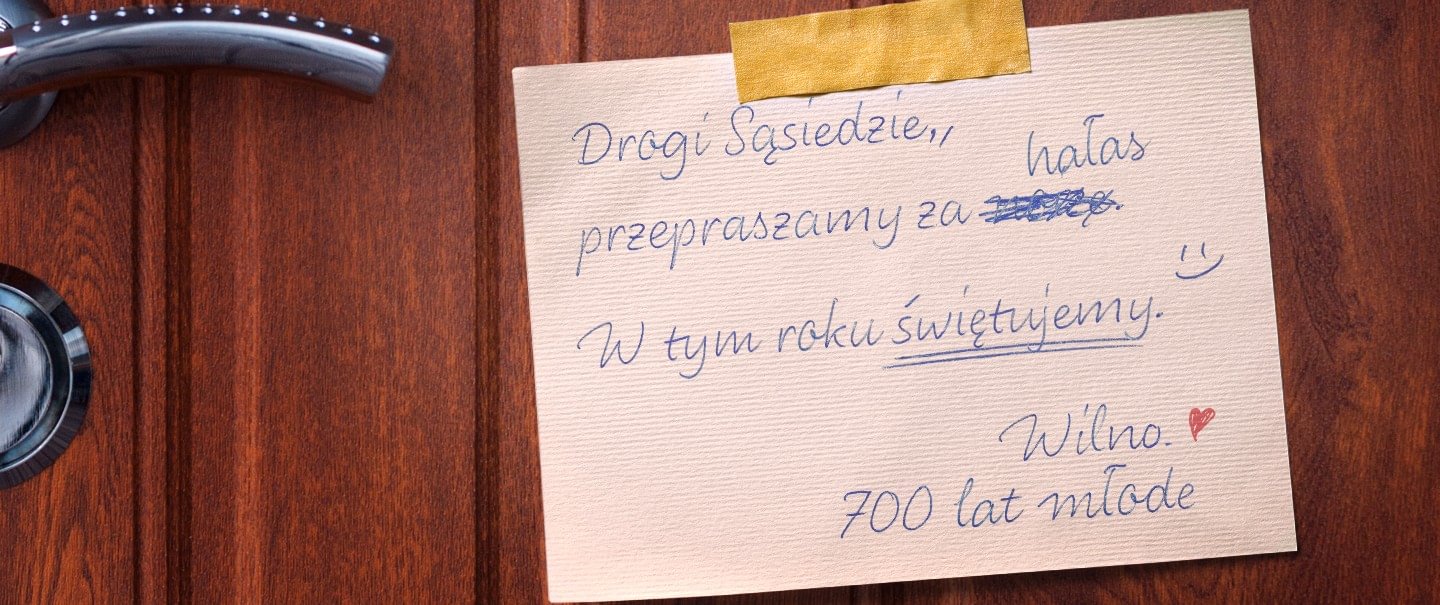 Drogi Sąsiedzie,,
przepraszamy za hałas
W tym roku świętujemy.
Wilno.
700 lat młode